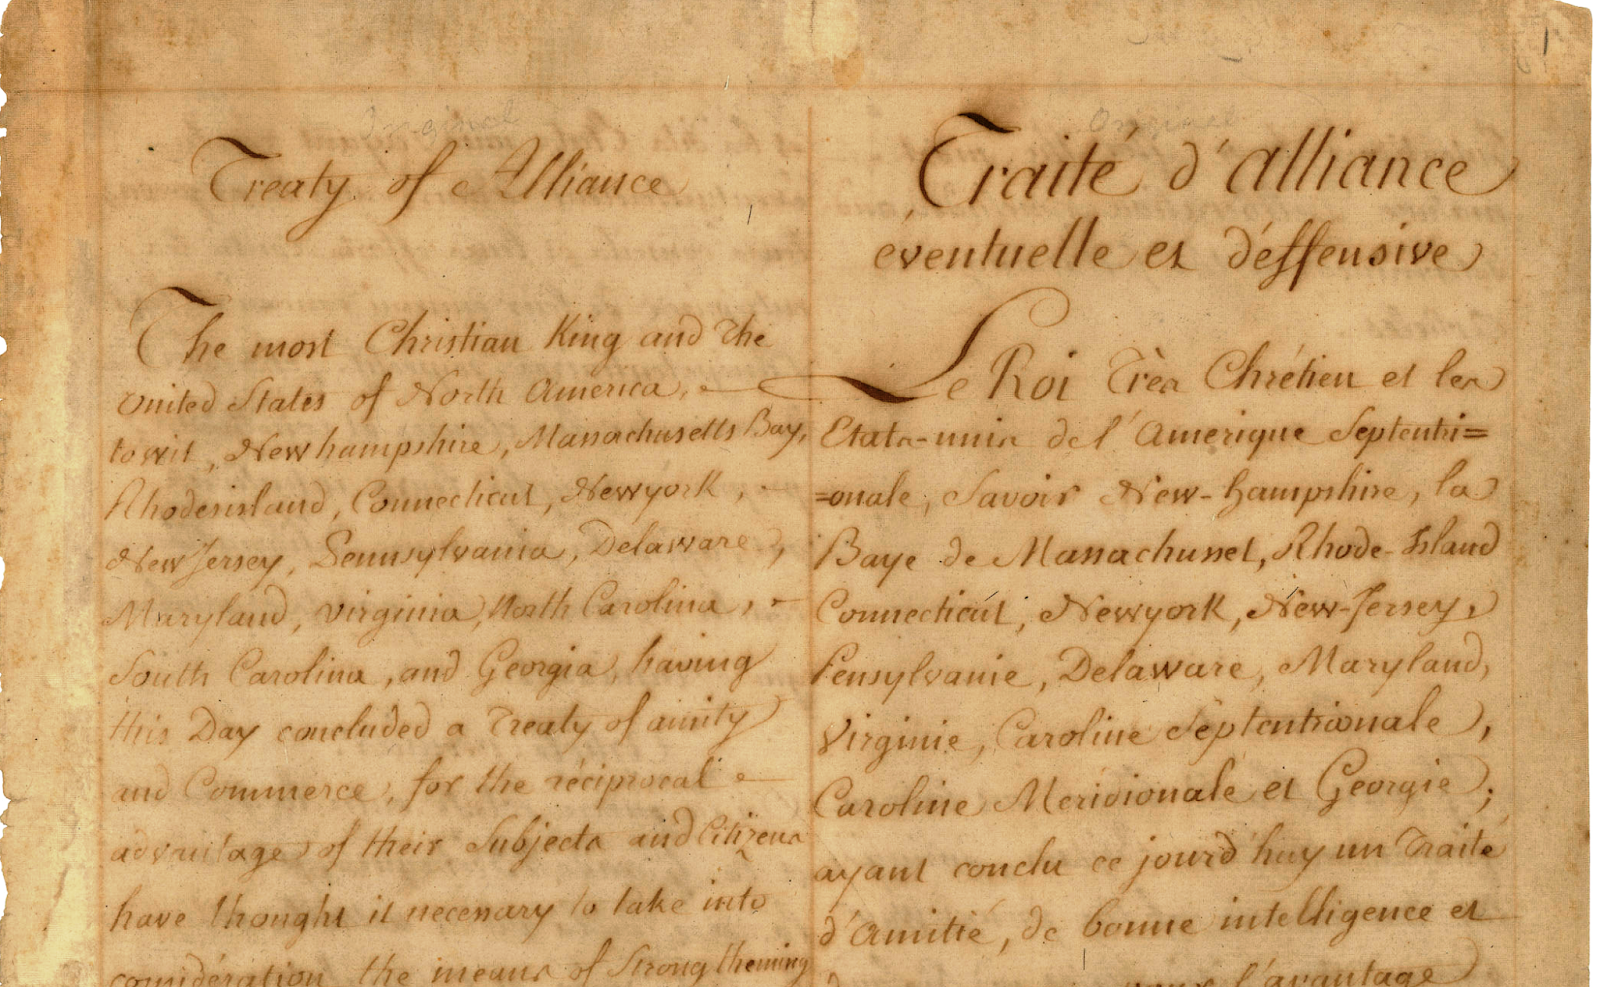 Original
Treaty of Alliance
The most Christian King and the
United States of North America,
to wit, Newhampshire, Massachusetts Bay,
Rhodesisland, Connecticut, Newyork,
New Jersey, Pennsylvania, Delaware,
Maryland, Virginia, North Carolina,
South Carolina, and Georgia, having
this Day concluded a Treaty of amity
and Commerce, for the réciprocal
advantage of their Subjects and Citizens
have thought it necessary to take into
considération the means of Strong thening
Original
Traité d'alliance
éventuelle et déffensive
Le Roi Très Chrétien et les
Etats-unis de l'Amerique Septentri=
=onale, Savoir New-hampshire, la
Baye de Massachusset, Rhode-Island
Connecticut, Newyork, New-Jersey,
Pensylvanie, Delaware, Maryland,
Virginie, Caroline Septentrionale,
Caroline Méridionale et Georgie;
ayant conclu ce jourd'huy un Traité
d'Amitié, de bonne intelligence et
l'avantage